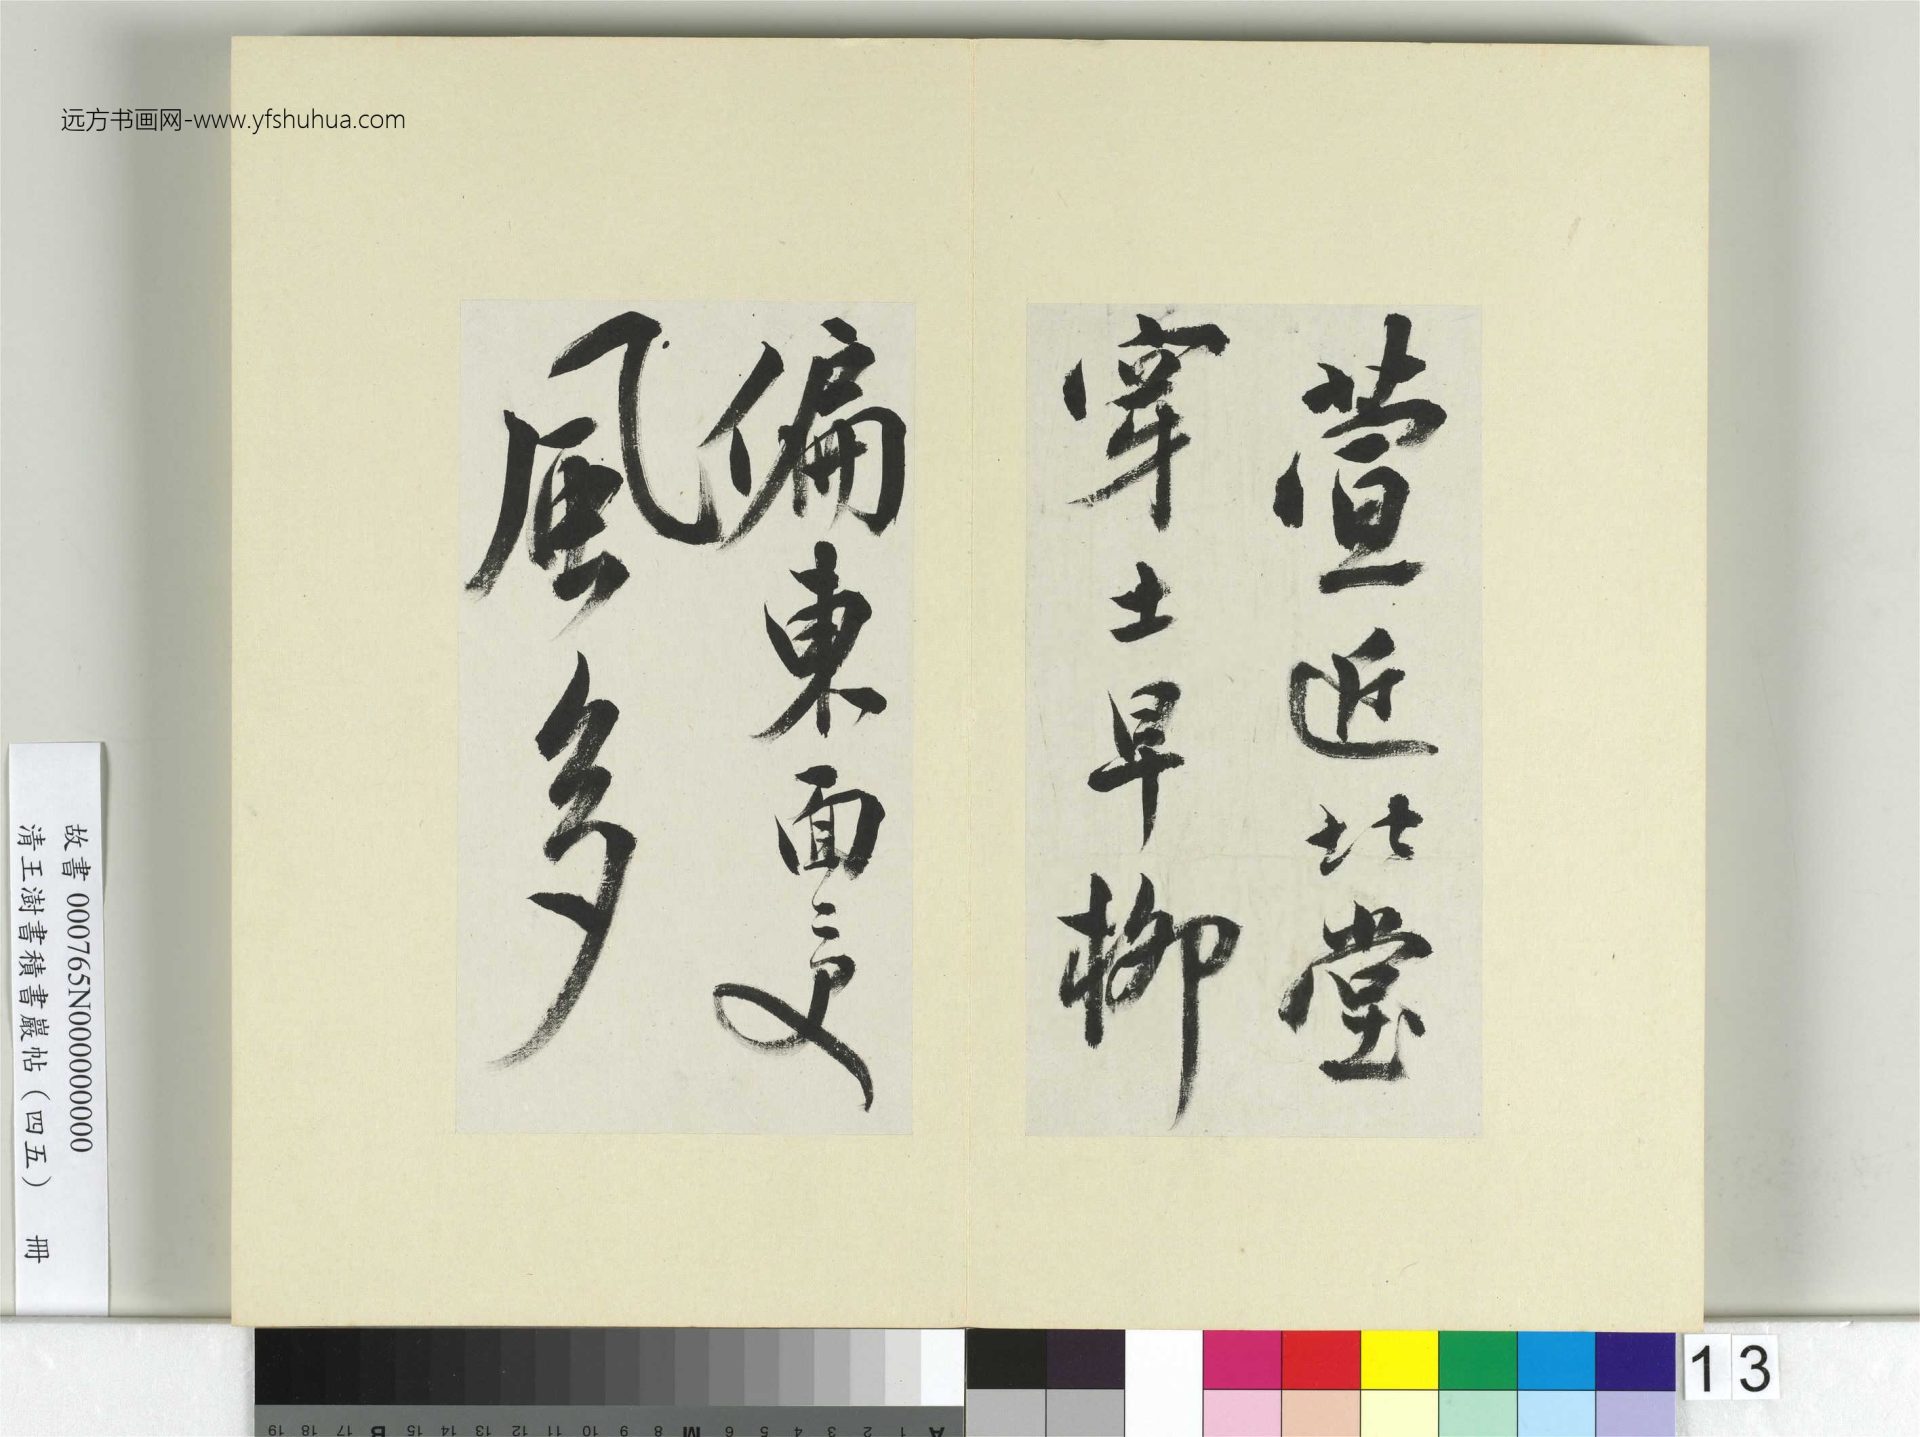 远方书画网-www.yfshuhua.com
萱近北堂
穿土早柳
偏東面受
風多
故書 000765N000000000
清王澍書積書巖帖（四五） 冊
13
A 1 2 3 4 5 6 M 8 9 10 11 12 13 14 15 B 17 18 19